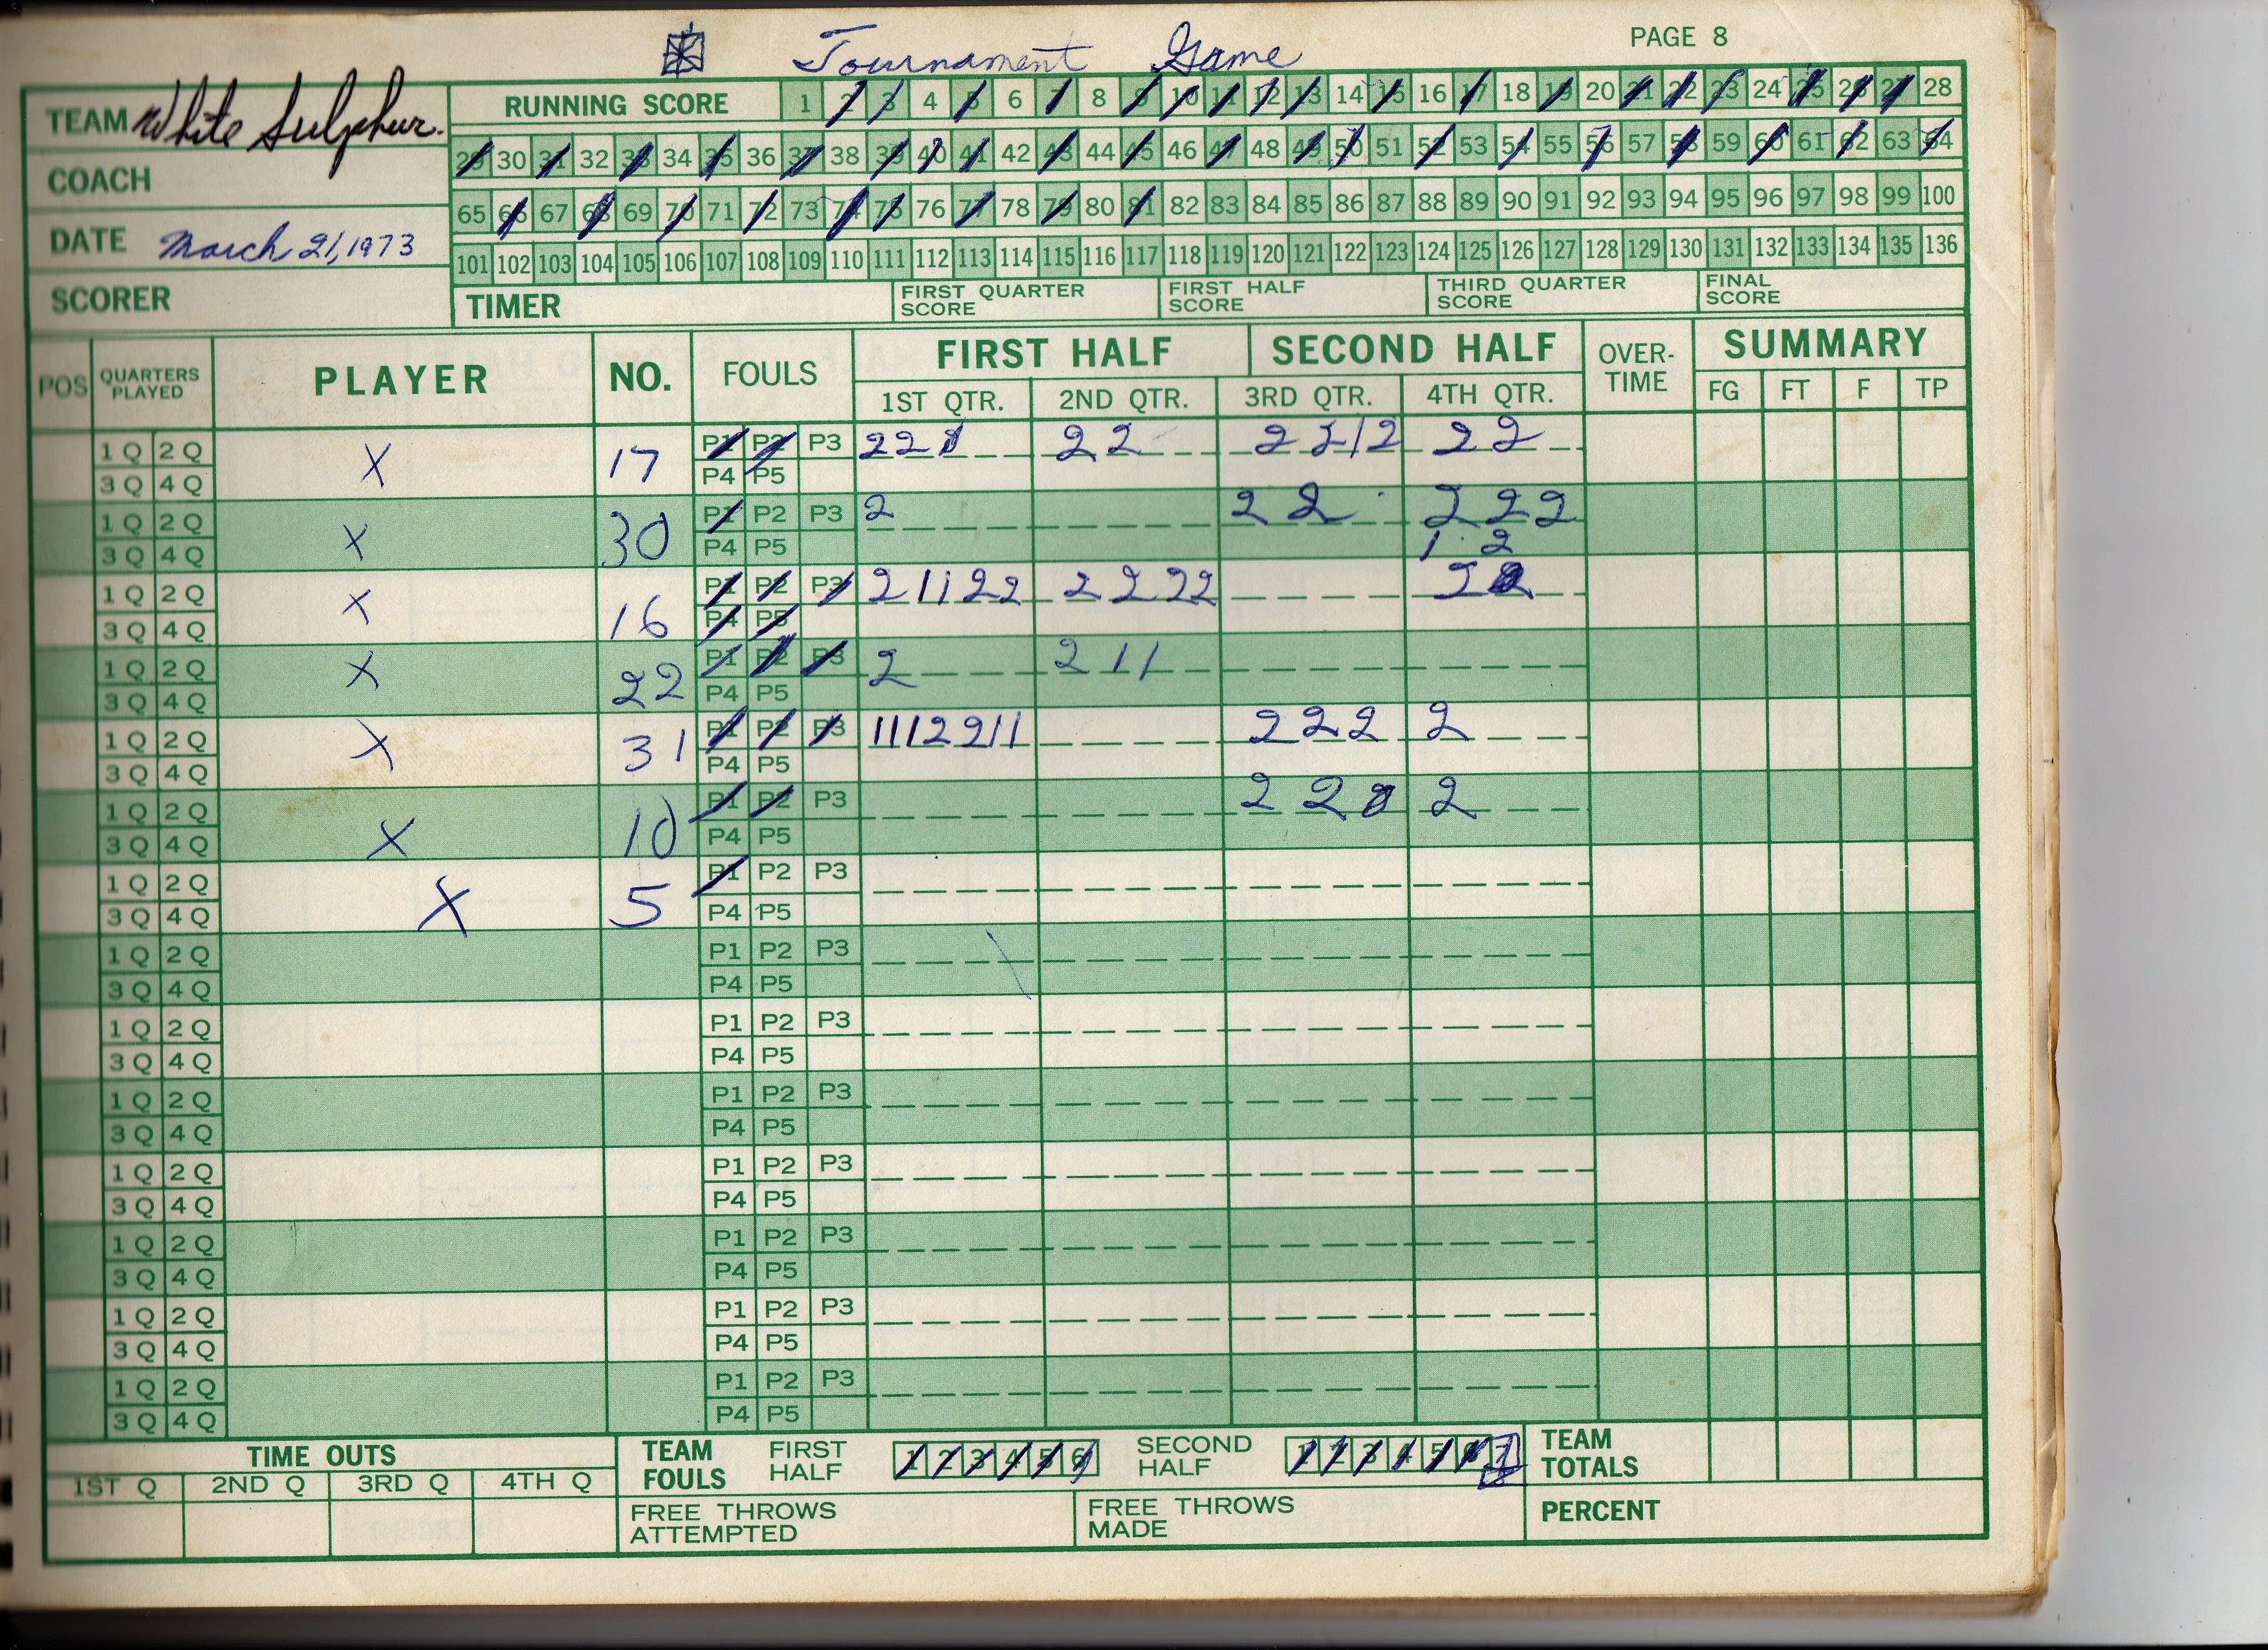 Tournament Game
PAGE 8
TEAM White Sulphur.
RUNNING SCORE 1 2 3 4 5 6 7 8 9 10 11 12 13 14 15 16 17 18 19 20 21 22 23 24 25 26 27 28
29 30 31 32 33 34 35 36 37 38 39 40 41 42 43 44 45 46 47 48 49 50 51 52 53 54 55 56 57 58 59 60 61 62 63 64
COACH
65 66 67 68 69 70 71 72 73 74 75 76 77 78 79 80 81 82 83 84 85 86 87 88 89 90 91 92 93 94 95 96 97 98 99 100
DATE March 21, 1973
101 102 103 104 105 106 107 108 109 110 111 112 113 114 115 116 117 118 119 120 121 122 123 124 125 126 127 128 129 130 131 132 133 134 135 136
SCORER
TIMER
FIRST QUARTER SCORE
FIRST HALF SCORE
THIRD QUARTER SCORE
FINAL SCORE
POS QUARTERS PLAYED PLAYER NO. FOULS FIRST HALF SECOND HALF OVER-TIME SUMMARY
1ST QTR. 2ND QTR. 3RD QTR. 4TH QTR. FG FT F TP
1Q 2Q X 17 P1 P2 P3 22 22 2212 22
3Q 4Q P4 P5
1Q 2Q X 30 P1 P2 P3 2 22 222
3Q 4Q P4 P5 1 2
1Q 2Q X 16 P1 P2 P3 21122 2222 22
3Q 4Q P4 P5
1Q 2Q X 22 P1 P2 P3 2 211
3Q 4Q P4 P5
1Q 2Q X 31 P1 P2 P3 1112211 222 2
3Q 4Q P4 P5
1Q 2Q X 10 P1 P2 P3 22 2
3Q 4Q P4 P5
1Q 2Q X 5 P1 P2 P3
3Q 4Q P4 P5
1Q 2Q P1 P2 P3
3Q 4Q P4 P5
1Q 2Q P1 P2 P3
3Q 4Q P4 P5
1Q 2Q P1 P2 P3
3Q 4Q P4 P5
1Q 2Q P1 P2 P3
3Q 4Q P4 P5
1Q 2Q P1 P2 P3
3Q 4Q P4 P5
1Q 2Q P1 P2 P3
3Q 4Q P4 P5
1Q 2Q P1 P2 P3
3Q 4Q P4 P5
TIME OUTS
1ST Q 2ND Q 3RD Q 4TH Q
TEAM FOULS FIRST HALF 1 2 3 4 5 6 SECOND HALF 1 2 3 4 5 6 7
TEAM TOTALS
FREE THROWS ATTEMPTED
FREE THROWS MADE
PERCENT